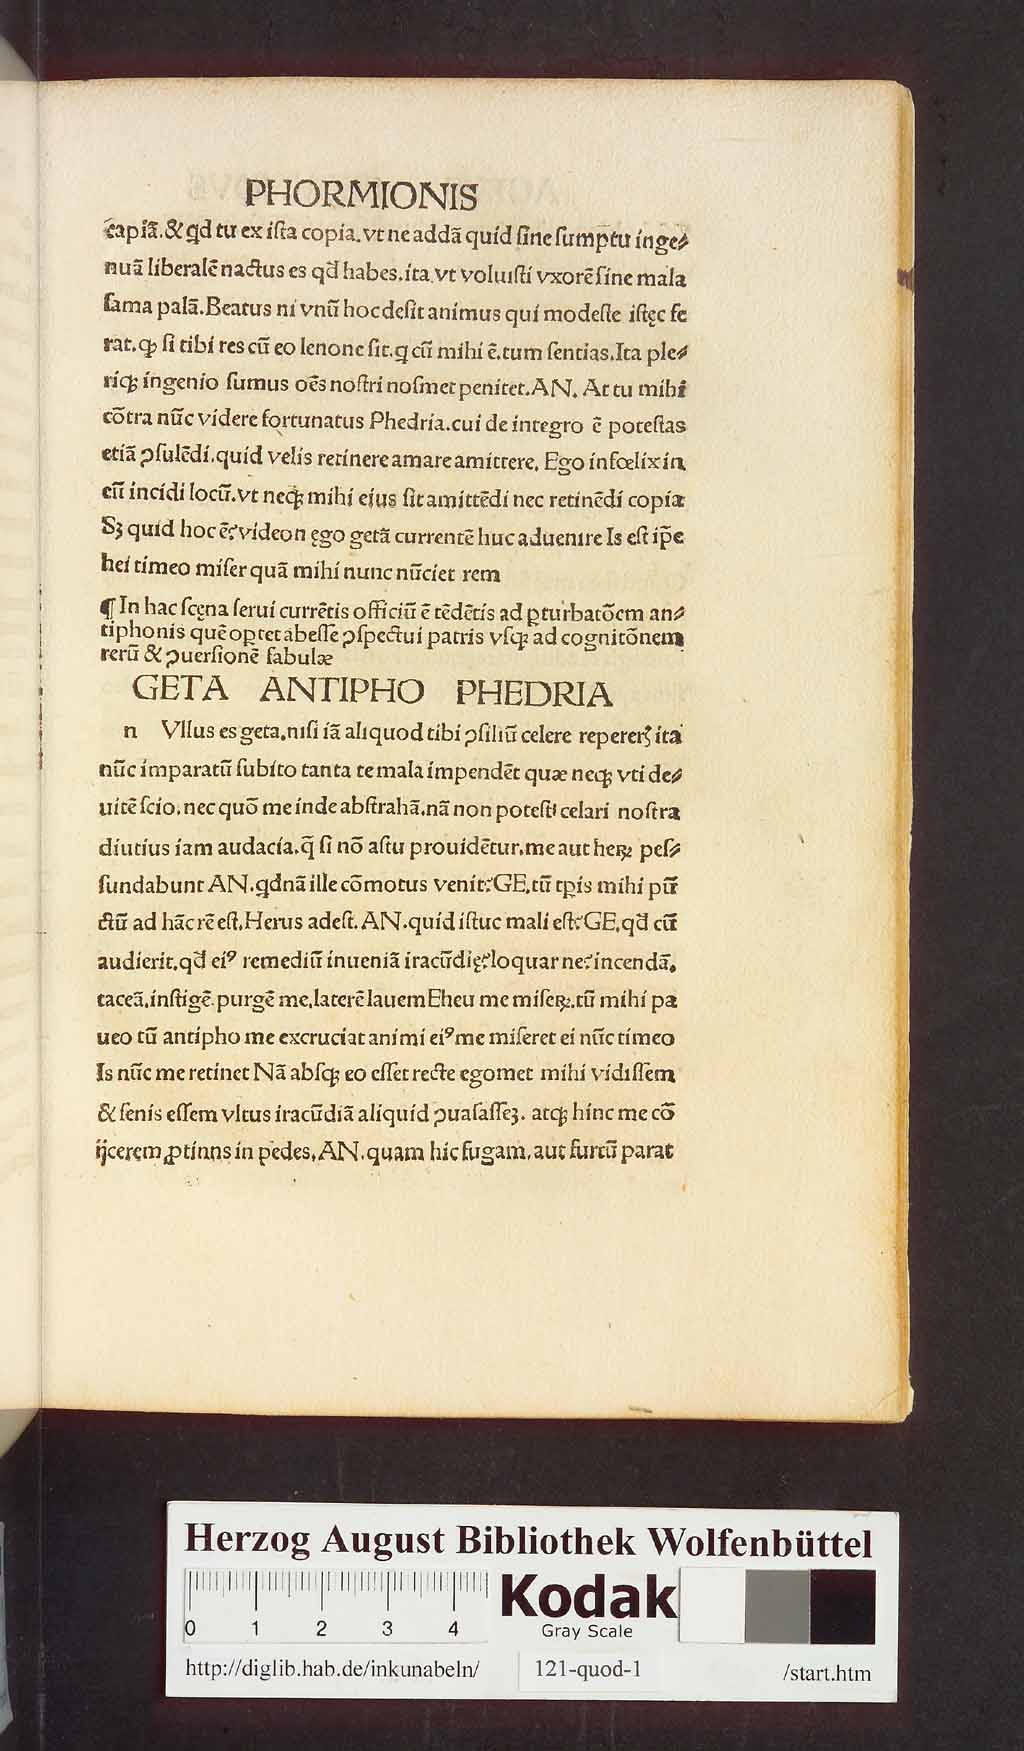 PHORMIONIS
capiā.&qd tu ex ista copia.vt ne addā quid sine sumptu inge⸗
nuā liberalē nactus es qđ habes.ita.vt voluisti vxorē sine mala
fama palā.Beatus ni vnū hoc desit animus qui modeste istęc fe
rat.ꝙ si tibi res cū eo lenone sit.q cū mihi ē.tum sentias.Ita ple⸗
riqꝫ ingenio sumus oēs nostri nosmet penitet.AN. At tu mihi
cōtra nūc videre fortunatus Phedria.cui de integro ē potestas
etiā ꝯsulēdi.quid velis retinere amare amittere. Ego infœlix in
eū incidi locū.vt neqꝫ mihi eius sit amittēdi nec retinēdi copia
Sꝫ quid hoc ē?videon ęgo getā currentē huc aduenire Is est ip̄e
hei timeo miser quā mihi nunc nūciet rem
¶ In hac scęna serui currētis officiū ē tēdētis ad ꝑturbatōem an⸗
tiphonis quē oꝑtet abesse ꝯspectui patris vsqꝫ ad cognitōnem
rerū & ꝯuersionē fabulæ
GETA ANTIPHO PHEDRIA
n Vllus es geta.nisi iā aliquod tibi ꝯsiliū celere repererꝭ ita
nūc imparatū subito tanta te mala impendēt quæ neqꝫ vti de⸗
uitē scio.nec quō me inde abstrahā.nā non potest celari nostra
diutius iam audacia.q̄ si nō astu prouidētur.me aut heꝝ pes⸗
sundabunt AN.qdnā ille cōmotus venit?GE.tū tp̄is mihi pū
ctū ad hāc rē est.Herus adest.AN.quid istuc mali est?GE.qđ cū
audierit.qđ eiꝰ remediū inueniā iracūdię?loquar ne?incendā.
taceā.instigē.purgē me.laterē lauem Eheu me miseꝝ.tū mihi pa
ueo tū antipho me excruciat animi eiꝰ me miseret ei nūc timeo
Is nūc me retinet Nā absqꝫ eo esset recte egomet mihi vidissem
& senis essem vltus iracūdiā aliquid ꝯuasasseꝫ. atqꝫ hinc me cō
ijcerem ꝓtinns in pedes.AN.quam hic fugam.aut furtū parat
Herzog August Bibliothek Wolfenbüttel
0 1 2 3 4
Kodak
Gray Scale
http://diglib.hab.de/inkunabeln/ 121-quod-1 /start.htm